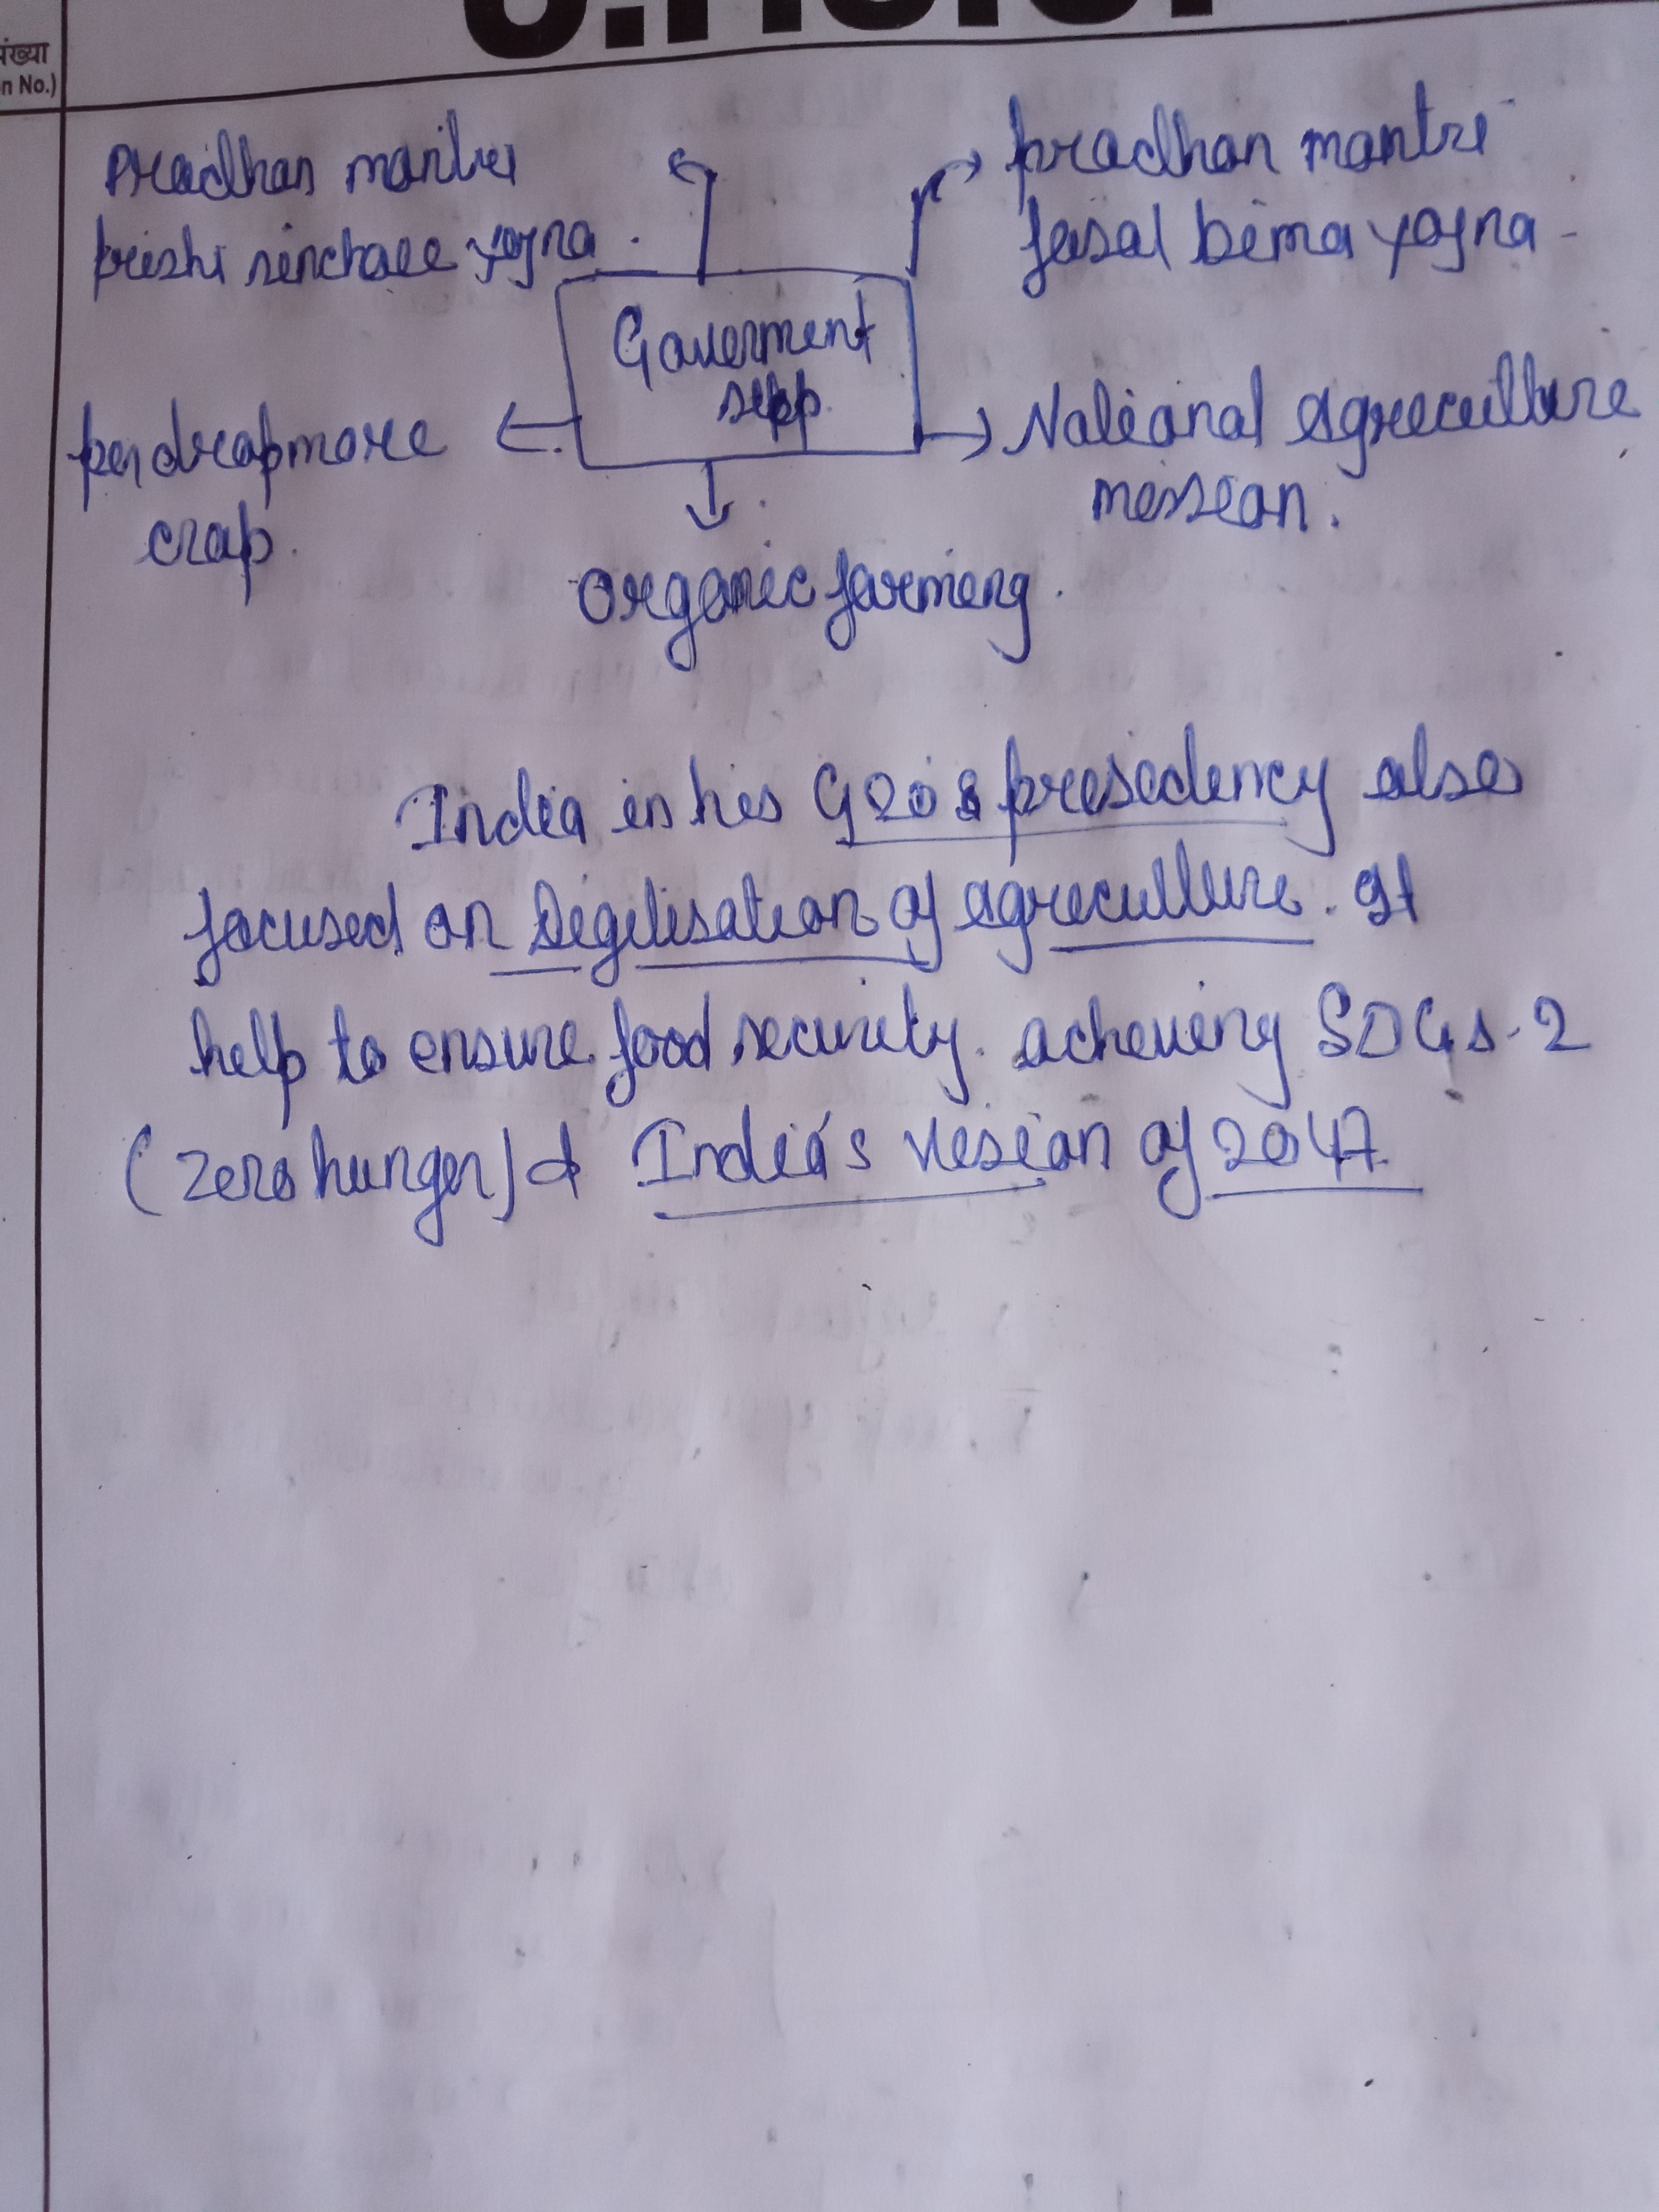 संख्या
n No.)
Pradhan mantri
krishi sinchaee yojna.
pradhan mantri
fasal bima yojna -
Goverment
supp.
per drop more
crop.
National Agriculture
mission.
organic farming.
India in his G20's presedency also
focused on Digitisation of agriculture. It
help to ensure food security. acheving SDGs-2
(Zero hunger) & India's vision of 2047.